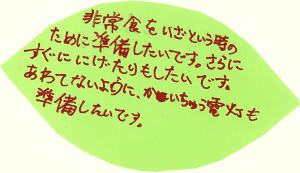 非常食をいざという時の
ために準備したいです。さらに
すぐににげたりもしたいです。
あわてないように、かいちゅう電灯も
準備したいです。